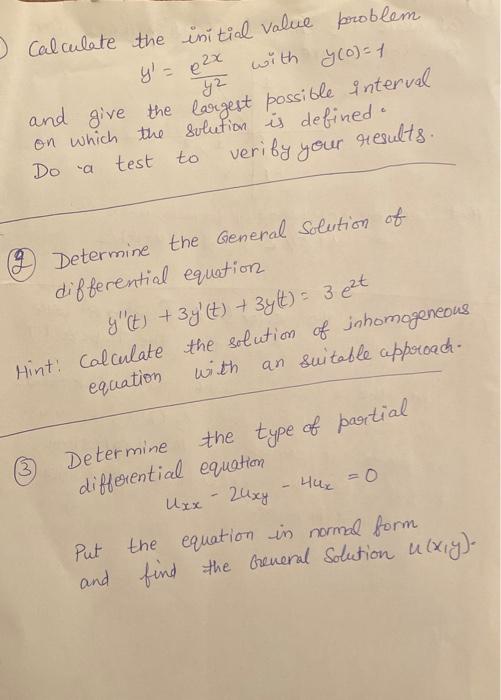 ) Calculate the initial value problem
y' = e^{2x}/y^2 with y(0)=1
and give the largest possible interval
on which the solution is defined.
Do a test to verify your results.
② Determine the General Solution of
differential equation
y''(t) + 3y'(t) + 3y(t) = 3 e^{2t}
Hint! Calculate the solution of inhomogeneous
equation with an suitable approach.
③ Determine the type of partial
differential equation
u_{xx} - 2u_{xy} - 4u_x = 0
Put the equation in normal form
and find the General Solution u(x,y).